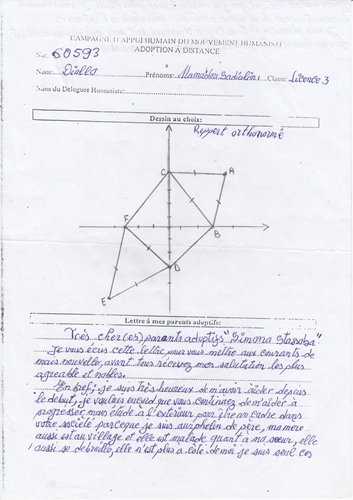 CAMPAGNE D'APPUI HUMAIN DU MOUVEMENT HUMANISTE
ADOPTION À DISTANCE
No: 60593
Nom: Diallo Prénoms: Mamadou Classe: Licence 3
Nom du Delegue Humaniste:
Dessin au choix:
Repport orthonormé
C A
F B
D
E
Lettre à mes parents adoptifs:
Très cher(es) parents adoptifs "Simona
Je vous écris cette lettre pour vous mettre aux courants de
mais nouvelle, avant tous recevez mon salutation les plus
agreable et nobles.
En bref; je suis très heureux de m'avoir aider depuis
le debut, je voulais encore que vous continuez de m'aider à
progresser mais étude à l'extérieur pour être un cadre dans
votre société parceque je suis orphelin de père, ma mère
aussi est au village et elle est malade quant à ma sœur, elle
aussi se debrouille, elle n'est plus a côté de moi je suis seul ces